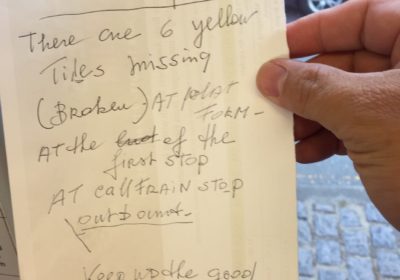 There are 6 yellow
Tiles missing
(Broken) AT PLAT
FORM-
AT the end of the
first STOP
AT calTRAIN STOP
outbound.
Keep up the good